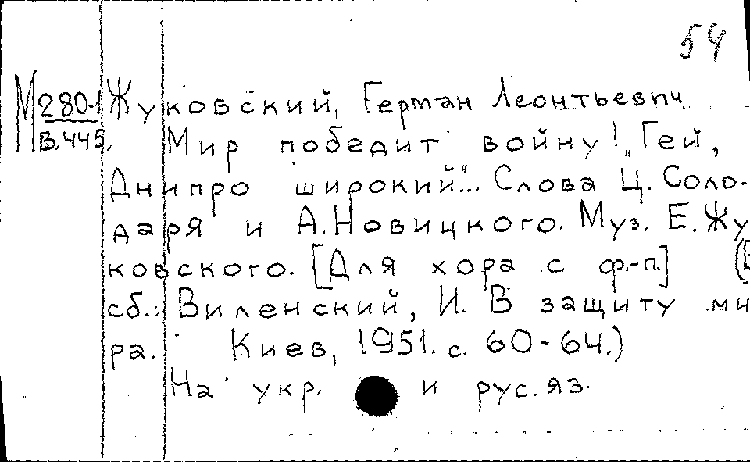 54
М 280-1 Жуковский, Герман Леонтьевич
В.445. Мир победит войну! „Гей,
Днипро широкий"... Слова Ц. Соло-
даря и А. Новицкого. Муз. Е. Жу
ковского. [Для хора с ф.-п.] (В
сб.: Виленский, И. В защиту ми
ра. Киев, 1951. с. 60-64.)
На укр. и рус. яз.